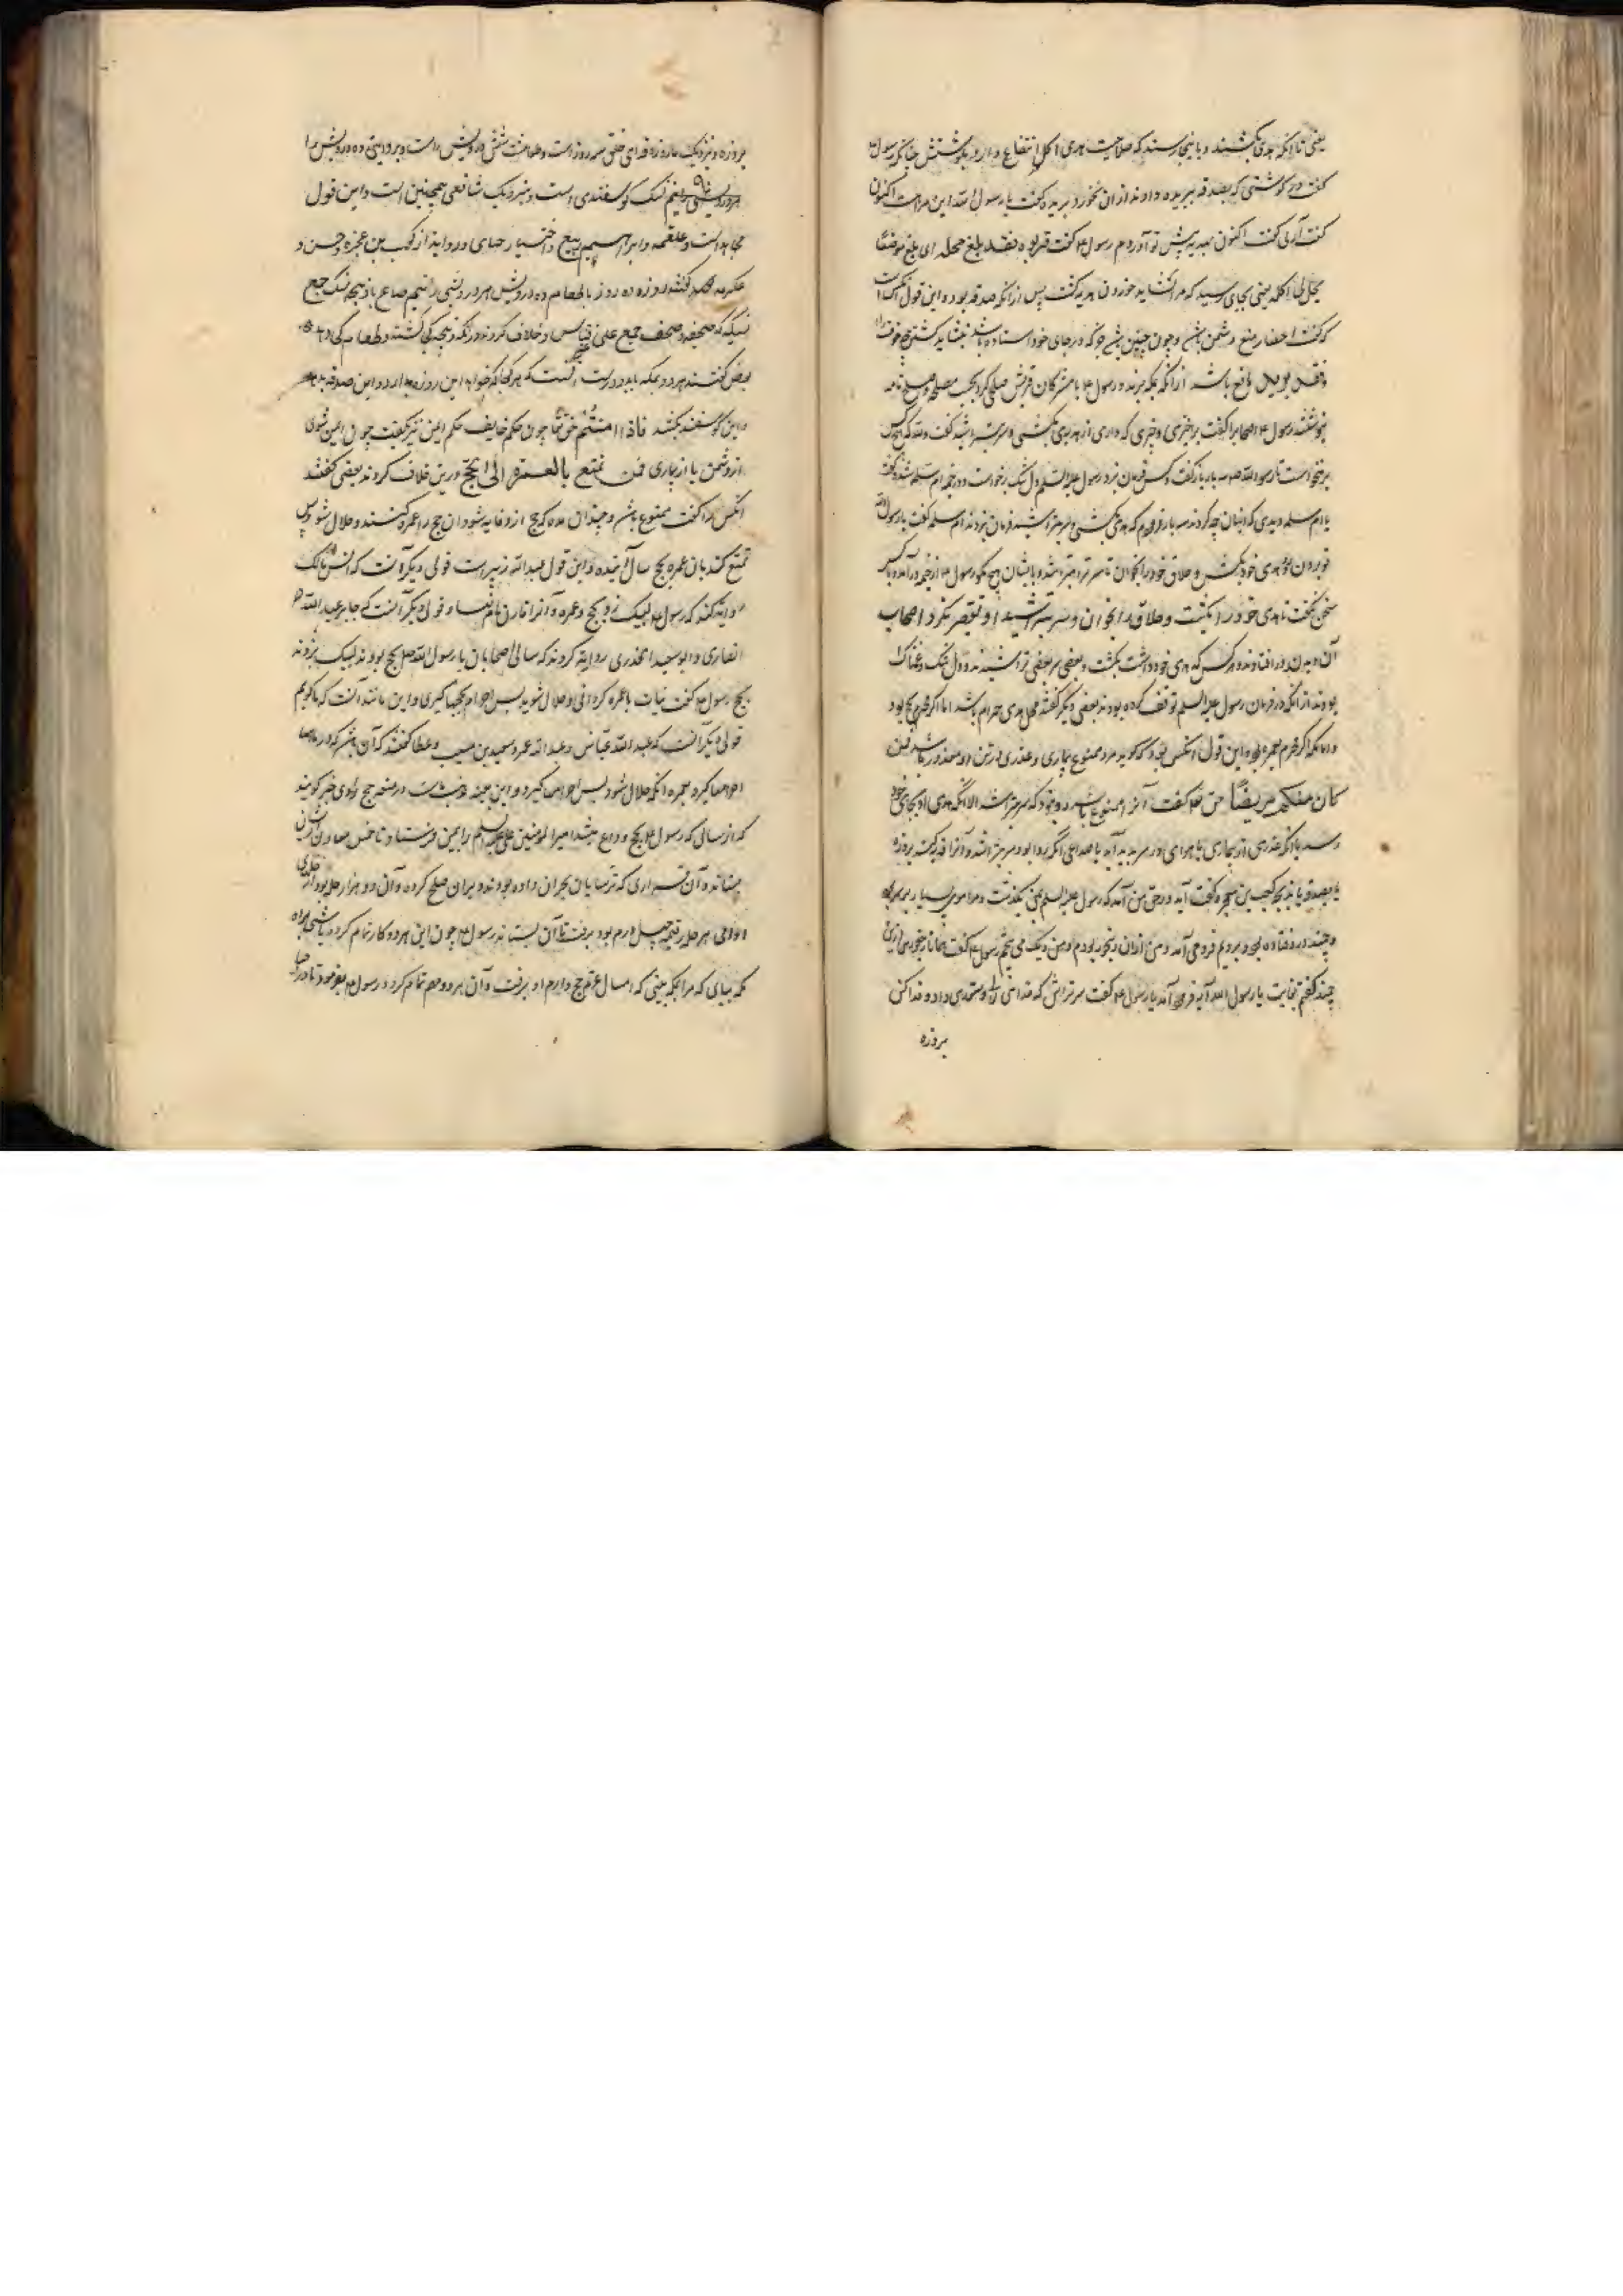 یعنی تا آنکه هدی بکشند و بانجا رسند که صلاحیت هدی اکل و انتفاع دارد بکوشتش چنانکه رسول ع
کفت در کوشتی که بصدقه ببریده دادند ازان نخورد بریده کفت یا رسول الله این مراست اکنون
کفت آری کفت اکنون بهدیه پیش تو آوردم رسول ع کفت قربوه فقد بلغ محله ای بلغ موضعًا
یحل لی اکله یعنی بجای رسید که مرا شاید خوردن هدیه کشت پس ازانکه صدقه بود و این قول آنکس است
که کفت احصار منع دشمن باشد و چون چنین باشد هرجا که در جای خود استاده باشد بشاید کشتن
مانع باشد ازانکه بمکه برند و رسول ع با مشرکان قریش صلح کرد بحسب مصلحه و صلح نامه
بنوشتند رسول ع اصحابرا کفت برخیزی و چیزی که داری از هدی بکشی و سر بتراشید کفت والله که هیچکس
برنخاست تا رسول الله صه سه بار باز کفت و کس فرمان نبرد رسول علیه السلم دل تنک برخاست و در خیمه ام سلمه شد و کفت
یا ام سلمه دیدی که اینان چه کردند سه بار فرمودم که هدی بکشی و سر بتراشید فرمان نبردند ام سلمه کفت یا رسول الله
تو برون رو هدی خود بکش و حلاق خود را بخوان تا سر تو بتراشد و با ایشان هیچ مکو رسول ع از خیمه درآمد و با کس
سخن نکفت تا هدی خود را بکشت و حلاق را بخوان و سر بتراشید او تقصیر نکرد اصحاب
آن دیدند درافتادند و هرکس که هدی خود داشت بکشت و بعضی سر بعضی تراشیدند و دل تنک و غمناک
بودند ازانکه در فرمان رسول علیه السلم توقف کرده بودند بعضی دیکر کفتند محل هدی حرام باشد اما اکر محرم بحج بود
و اما مکه اکر محرم بعمره بود و این قول آنکس بود که کوید مرد ممنوع بیماری و عذری در تن او معذور باشد فمن
کان منکم مریضًا حق تع کفت آنرا ممنوع باشد روا نبود که سر بتراشد الا آنکه هدی او بجای خود
رسد یا آنکه عذری از بیماری یا هوای در سر پدید آید یا صداعی آنکه روا بود سر بتراشد و آنرا فدیه کند بروزه
یا بصدقه یا بذبیحه کعب بن عجره کفت آیه در حق من آمد که رسول علیه السلم بمن بکذشت و مرا موی بسیار بر سر بود
و چند در وفتاده بود و برویم فرو می آمد و من ازان رنجور بودم و من دیک می پختم رسول ع کفت همانا رنجوری ازین
چند کفتم بغایت یا رسول الله آیه فرود آمد یا رسول ع کفت سر تراش که خدای ترا دستوری داد و فدا کن
بروزه
بروزه و نزدیک ما روزه فدای حلق سه روز است و طعامت شش درویش راست و بروایتی ده درویش را
هر درویشی را نیم نسک کوسفندی است و بنزدیک شافعی همچنین است و این قول
مجاهد است و علقمه و ابراهیم و ربیع و اختیار جبای و روایة از کعب بن عجره و حسن و
عکرمه کفتند روزه ده روز یا طعام ده درویش هر درویشی را نیم صاع یا ذبیحه نسک جمع
نسیکه که صحیفه و صحف جمع علی غیر قیاس و خلاف کردند در آنکه ذبیحه کجا کشند و طعام کجا دهند
بعضی کفتند هر دو بمکه باید و درست آنست که هر کجا که خواهد این روزه بدارد و این صدقه بدهد
و این کوسفند بکشد فاذا امنتم حق تع چون حکم خایف حکم ایمن نیز بکفت چون ایمن شوی
از دشمن یا از بیماری فمن تمتع بالعمرة الی الحج درین خلاف کردند بعضی کفتند
آنکس را کفت ممنوع باشد و چندان مده که حج ازو فایت شود آن حج را عمره کنند و حلال شود پس
تمتع کند بان عمره بحج سال آینده و این قول عبد الله زبیر است قولی دیکر آنست که انس مالک
روایة کند که رسول ع لبیک زد بحج و عمره و آنرا قارن نام نهاد و قولی دیکر آنست که جابر عبد الله
انصاری و ابو سعید الخدری روایة کردند که سالی اصحابان با رسول الله صلع بحج بودند لبیک بزدند
بحج رسول ع کفت نیات با عمره کردانی و حلال شوید پس احرام بحجها کیری و این مانند آنست که ما کویم
قولی دیکر آنست که عبد الله عباس و عبد الله عمر و سعید بن مسیب و عطا کفتند که آن باشد که در ماهها
احرامها کیرد بعمره آنکه حلال شود پس احرامها کیرد و این بعینه مذهب ماست در متعه حج راوی خبر کویند
که از سالی که رسول ع بحج وداع میشد امیر المومنین علی علیه السلم را بیمن فرستاد تا خمس معادن ایشان
بستاند و آن قراری که ترسایان نجران داده بودند و بران صلح کرده و آن دو هزار حله بود از حله‌ی
اواقی هر حله قیمة چهل درم بود برفت تا آن بستاند رسول ع چون این هر دو کار تمام کرده باشی براه
مکه بیای که مرا بمکه بینی که امسال عزم حج دارم او برفت و آن هر دو مهم تمام کرد و رسول ع بفرمود تا ندا